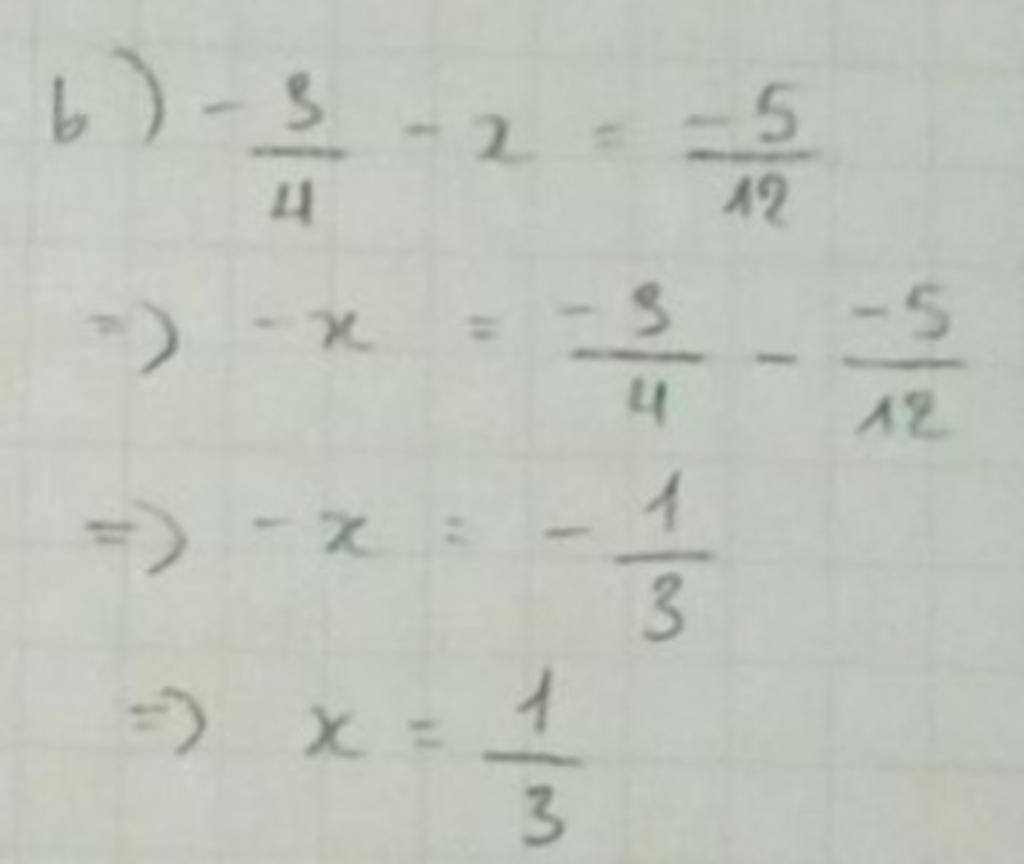 b) - 3/4 - x = -5/12
=> -x = -3/4 - -5/12
=> -x = - 1/3
=> x = 1/3